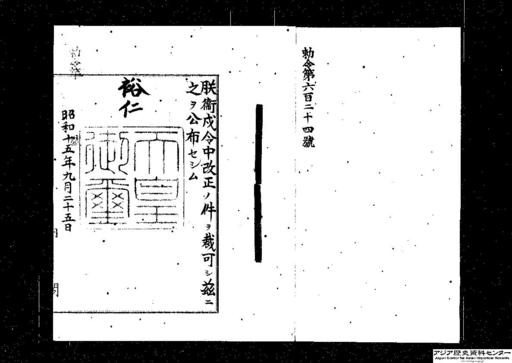 勅令第六百二十四號
朕衞戍令中改正ノ件ヲ裁可シ茲ニ
之ヲ公布セシム
裕仁
天皇
御璽
昭和十五年九月二十五日
内閣
アジア歴史資料センター
Japan Center for Asian Historical Records